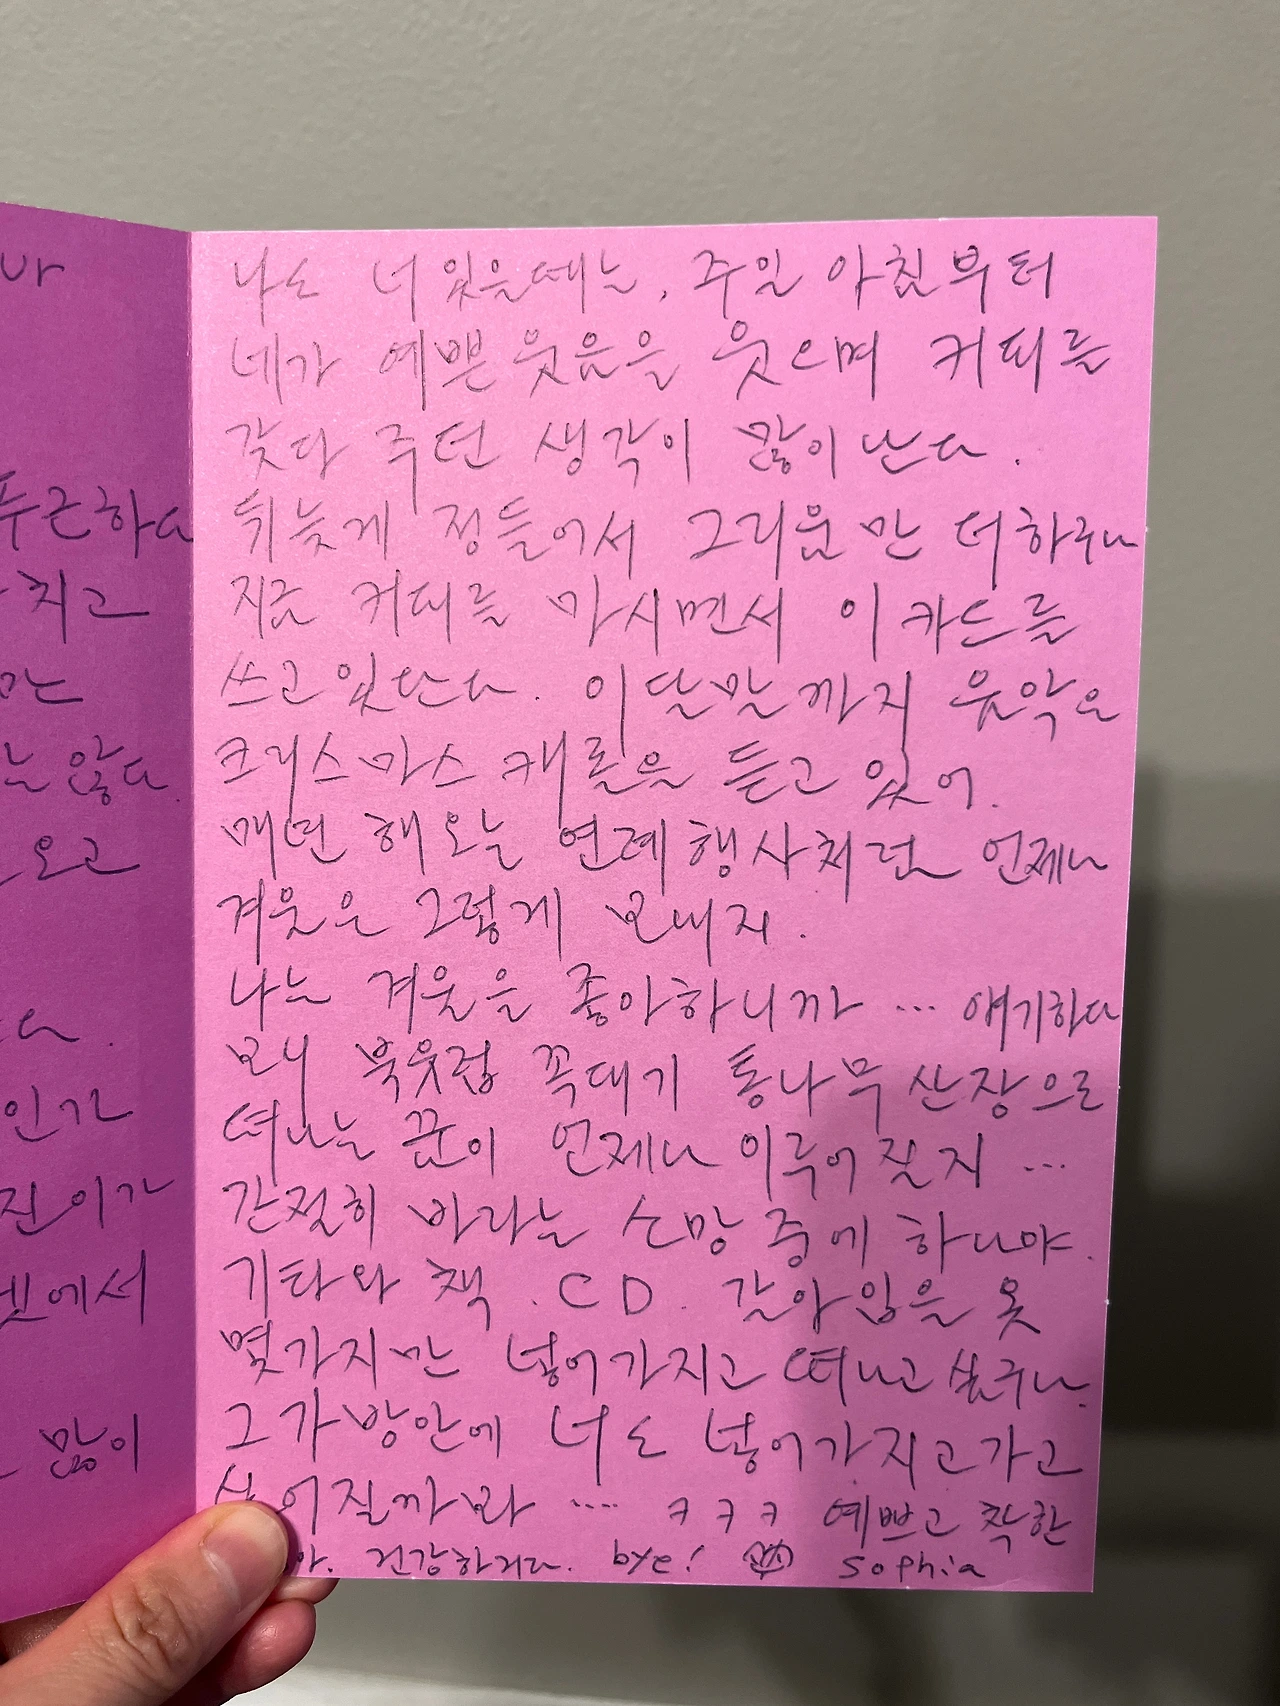 나도 너 있을때는, 주일 아침부터
네가 예쁜 웃음을 웃으며 커피를
갖다 주던 생각이 많이 난다.
뒤늦게 정들어서 그리움만 더하구나
지금 커피를 마시면서 이 카드를
쓰고 있단다. 이달말까지 음악은
크리스마스 캐롤을 듣고 있어.
매년 해오는 연례행사처럼 언제나
겨울은 그렇게 보내지.
나는 겨울을 좋아하니까 … 얘기하다
보니 북유럽 꼭대기 통나무 산장으로
떠나는 꿈이 언제나 이루어질지 …
간절히 바라는 소망 중에 하나야.
기타와 책. CD. 갈아입을 옷
몇가지만 넣어가지고 떠나고 싶구나.
그 가방안에 너도 넣어가지고가고
싶어질까봐 .... ㅋㅋㅋ 예쁘고 착한
건강하거라. bye! Sophia
푸근하다
치고
만
는 않다.
오고
다.
인가
진이가
에서
많이